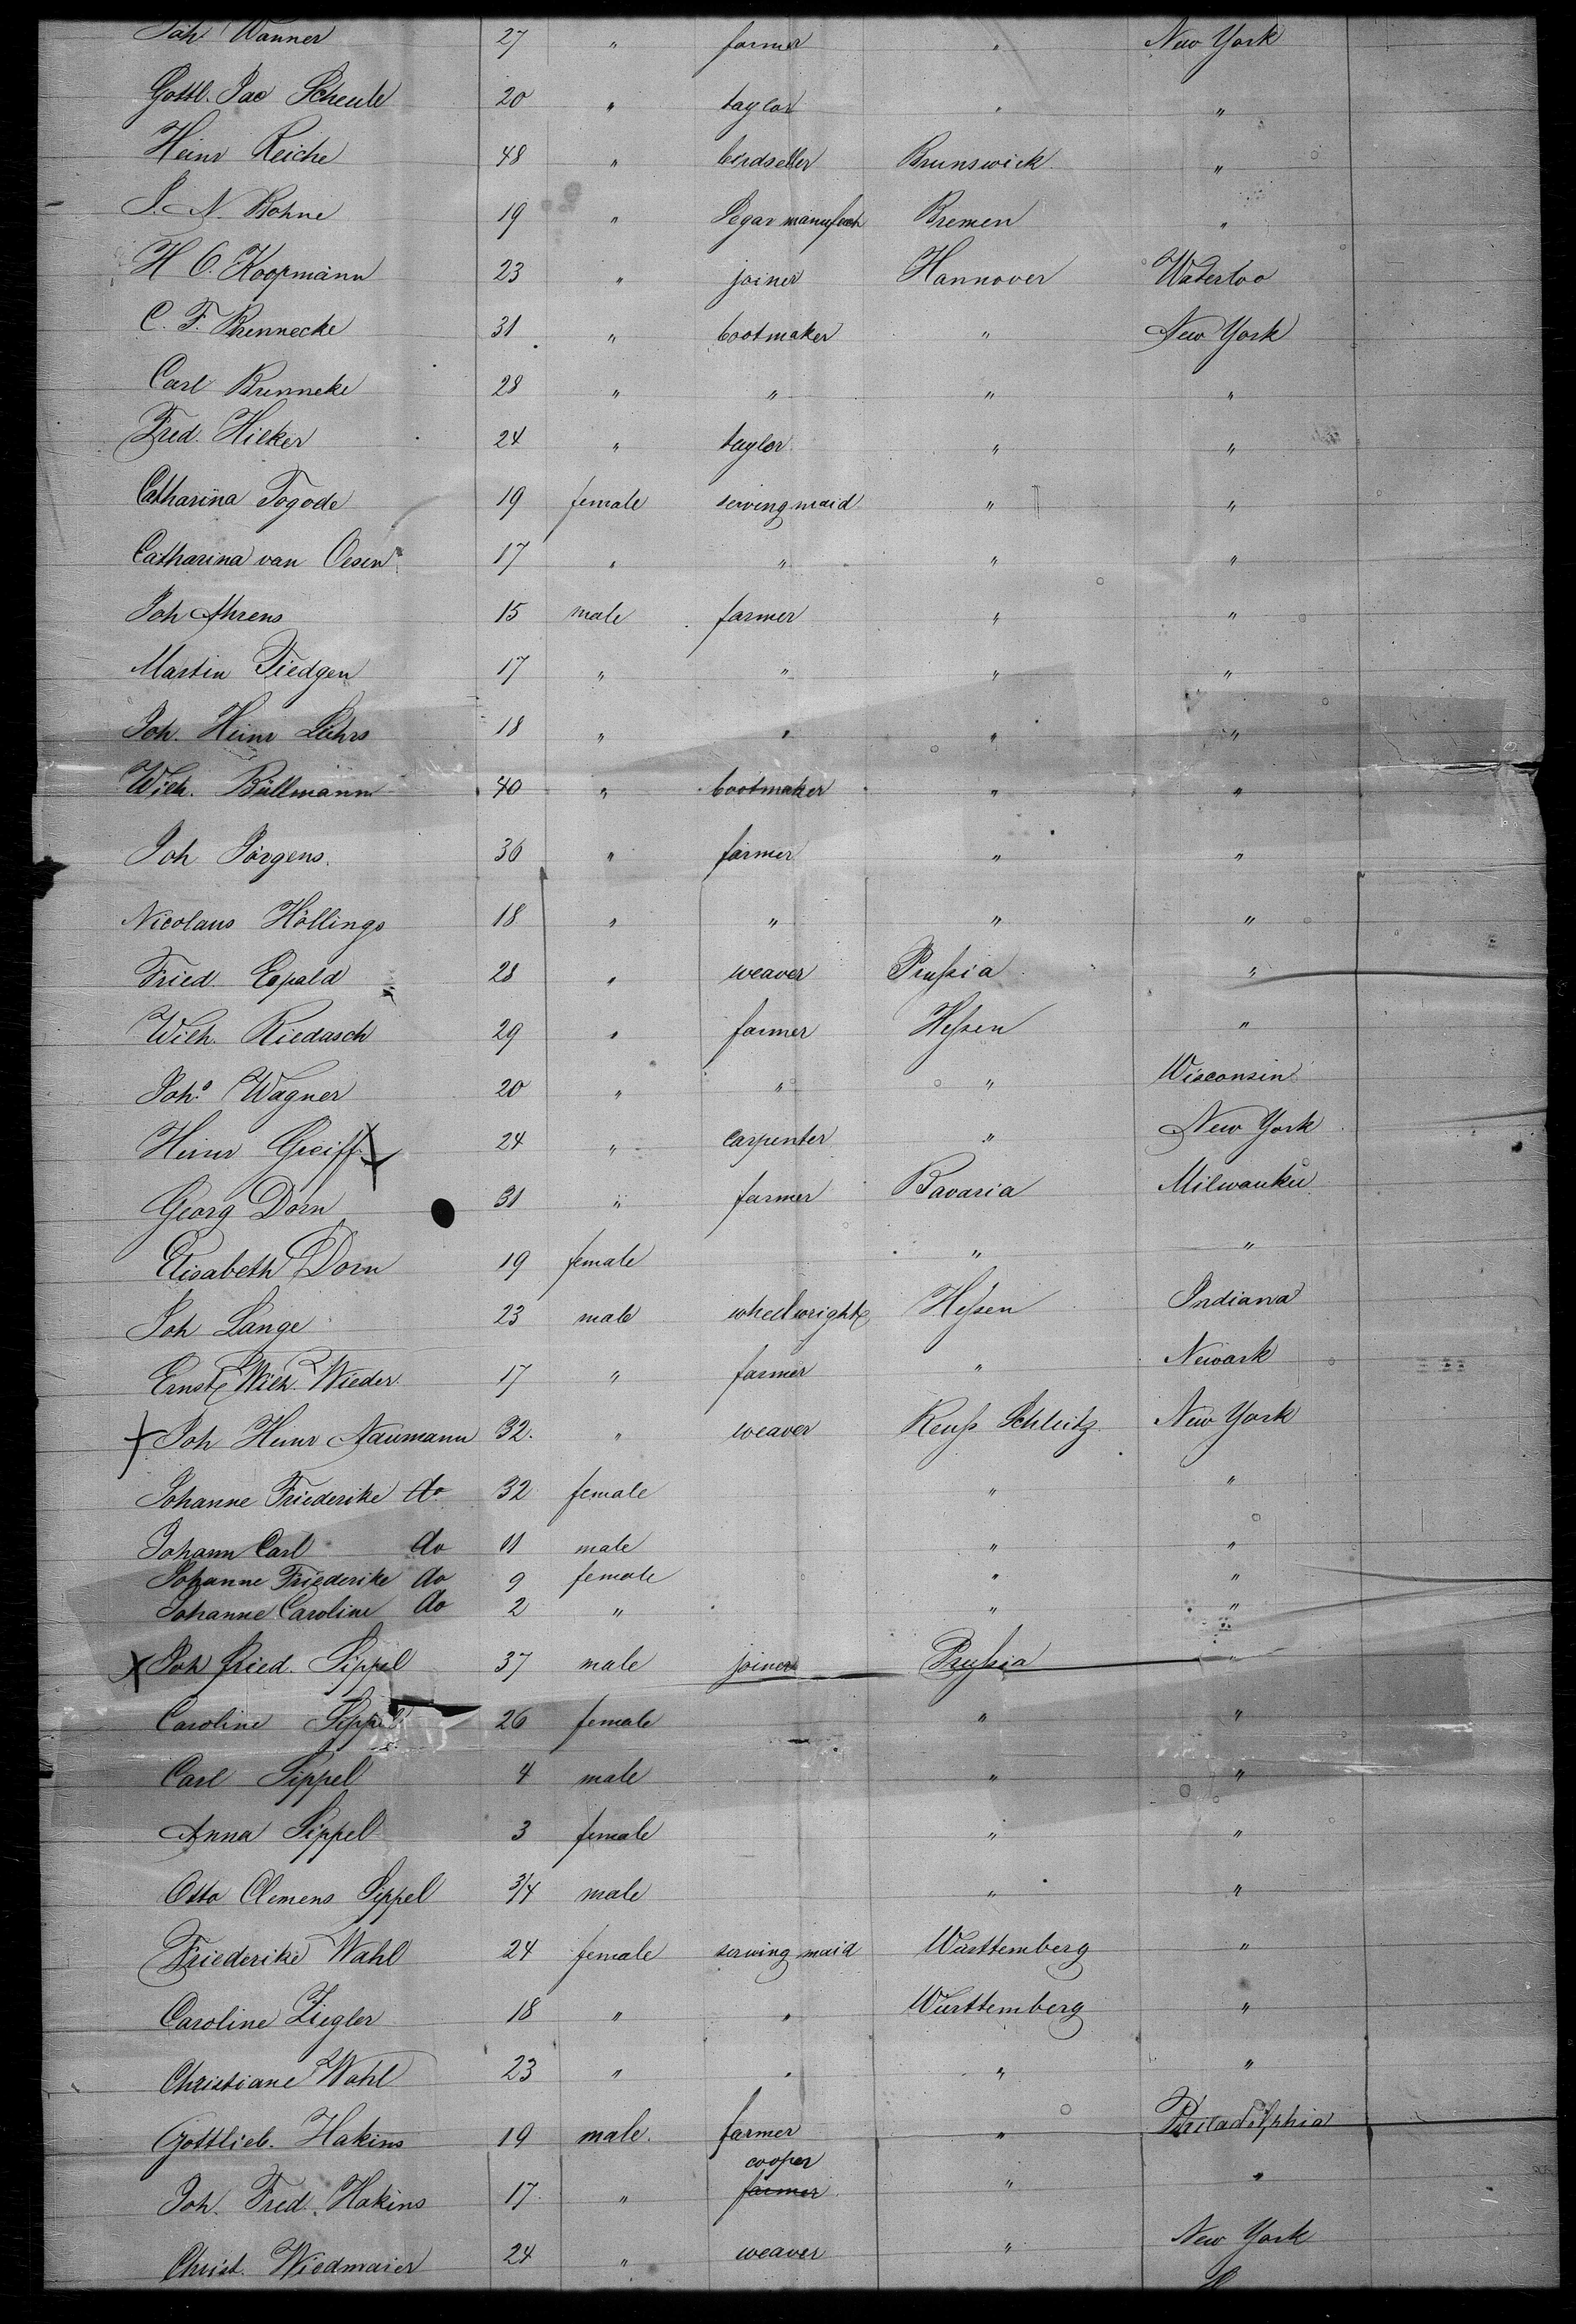 Joh Wanner 27 " farmer " New York
Gottl. Jac Scheule 20 " taylor " "
Heinr Reiche 48 " birdseller Brunswick "
J. N. Bohne 19 " Segar manufact Bremen "
H C. Koopmann 23 " joiner Hannover Waterloo
C. F. Brennecke 31 " bootmaker " New York
Carl Brenneke 28 " " " "
Fred. Hilker 24 " taylor " "
Catharina Togode 19 female serving maid " "
Catharina van Oesen 17 " " " "
Joh Ahrens 15 male farmer " "
Martin Tiedgen 17 " " " "
Joh. Heinr Lührs 18 " " " "
Wilh. Büllmann 40 " bootmaker " "
Joh Jörgens. 36 " farmer " "
Nicolaus Höllings 18 " " " "
Fried 28 " weaver Prussia "
Wilh. Riedasch 29 " farmer Hessen "
Johs Wagner 20 " " " Wisconsin
Heinr Greiff 24 " carpenter " New York
Georg Dorn 31 " farmer Bavaria Milwaukee
Elisabeth Dorn 19 female " "
Joh Lange 23 male wheelwright Hessen Indiana
Ernst Wilh. Wieder 17 " farmer " Newark
Joh Heinr Naumann 32. " weaver Reuss Schleitz New York
Johanne Friederike do 32 female " "
Johann Carl do 11 male " "
Johanne Friederike do 9 female " "
Johanne Caroline do 2 " " "
Joh Fried. Sippel 37 male joiner Prussia "
Caroline Sippel 26 female " "
Carl Sippel 4 male " "
Anna Sippel 3 female " "
Otto Clemens Sippel 3/4 male " "
Friederike Wahl 24 female serving maid Württemberg "
Caroline Ziegler 18 " " Württemberg "
Christiane Wahl 23 " " " "
Gottlieb. Hakins 19 male. farmer " Philadelphia
cooper
Joh. Fred. Hakins 17 " farmer " "
Christ. Wiedmaier 24 " weaver " New York